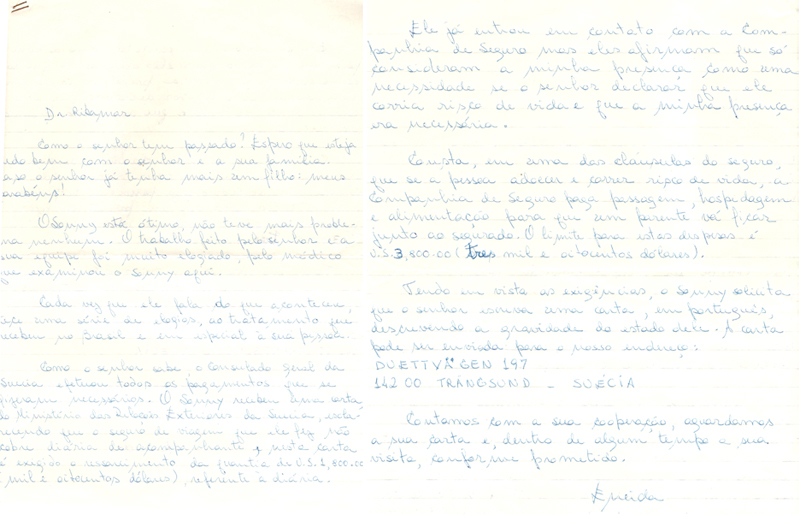 Dr. Ribamar
Como o senhor tem passado? Espero que esteja
tudo bem com o senhor e a sua família.
aso o senhor já tenha mais um filho: meus
parabéns!
O Sonny está ótimo, não teve mais proble-
ma nenhum. O trabalho feito pelo senhor e a
sua equipe foi muito elogiado, pelo médico
que examinou o Sonny aqui.
Cada vez que ele fala do que aconteceu,
uma série de elogios, ao tratamento que
recebeu no Brasil e em especial à sua pessoa.
Como o senhor sabe o Consulado Geral da
Suécia efetuou todos os pagamentos que se
fizeram necessários. O Sonny recebeu uma carta
do Ministério das Relações Exteriores da Suécia, escla-
recendo que o seguro de viagem que ele fez não
cobre diária de acompanhante e, nesta carta
é exigido o ressarcimento da quantia de U.S.1,800.00
mil e oitocentos dólares), referente a diária.
Ele já entrou em contato com a Com-
panhia de Seguro mas eles afirmam que só
consideram a minha presença como uma
necessidade se o senhor declarar que ele
corria risco de vida e que a minha presença
era necessária.
Consta, em uma das clausulas do seguro,
que se a pessoa adoecer e correr risco de vida, a
Companhia de Seguro paga passagem, hospedagem
e alimentação para que um parente vá ficar
junto ao segurado. O limite para estas despesas é
U.S.3,800.00 (tres mil e oitocentos dólares).
Tendo em vista as exigências, o Sonny solicita
que o senhor escreva uma carta, em português,
descrevendo a gravidade do estado dele. A carta
pode ser enviada para o nosso endereço:
DUETTVÄGEN 197
142 00 TRÅNGSUND - SUÉCIA
Contamos com a sua cooperação, aguardamos
a sua carta e, dentro de algum tempo a sua
visita, conforme prometido.
Eneida